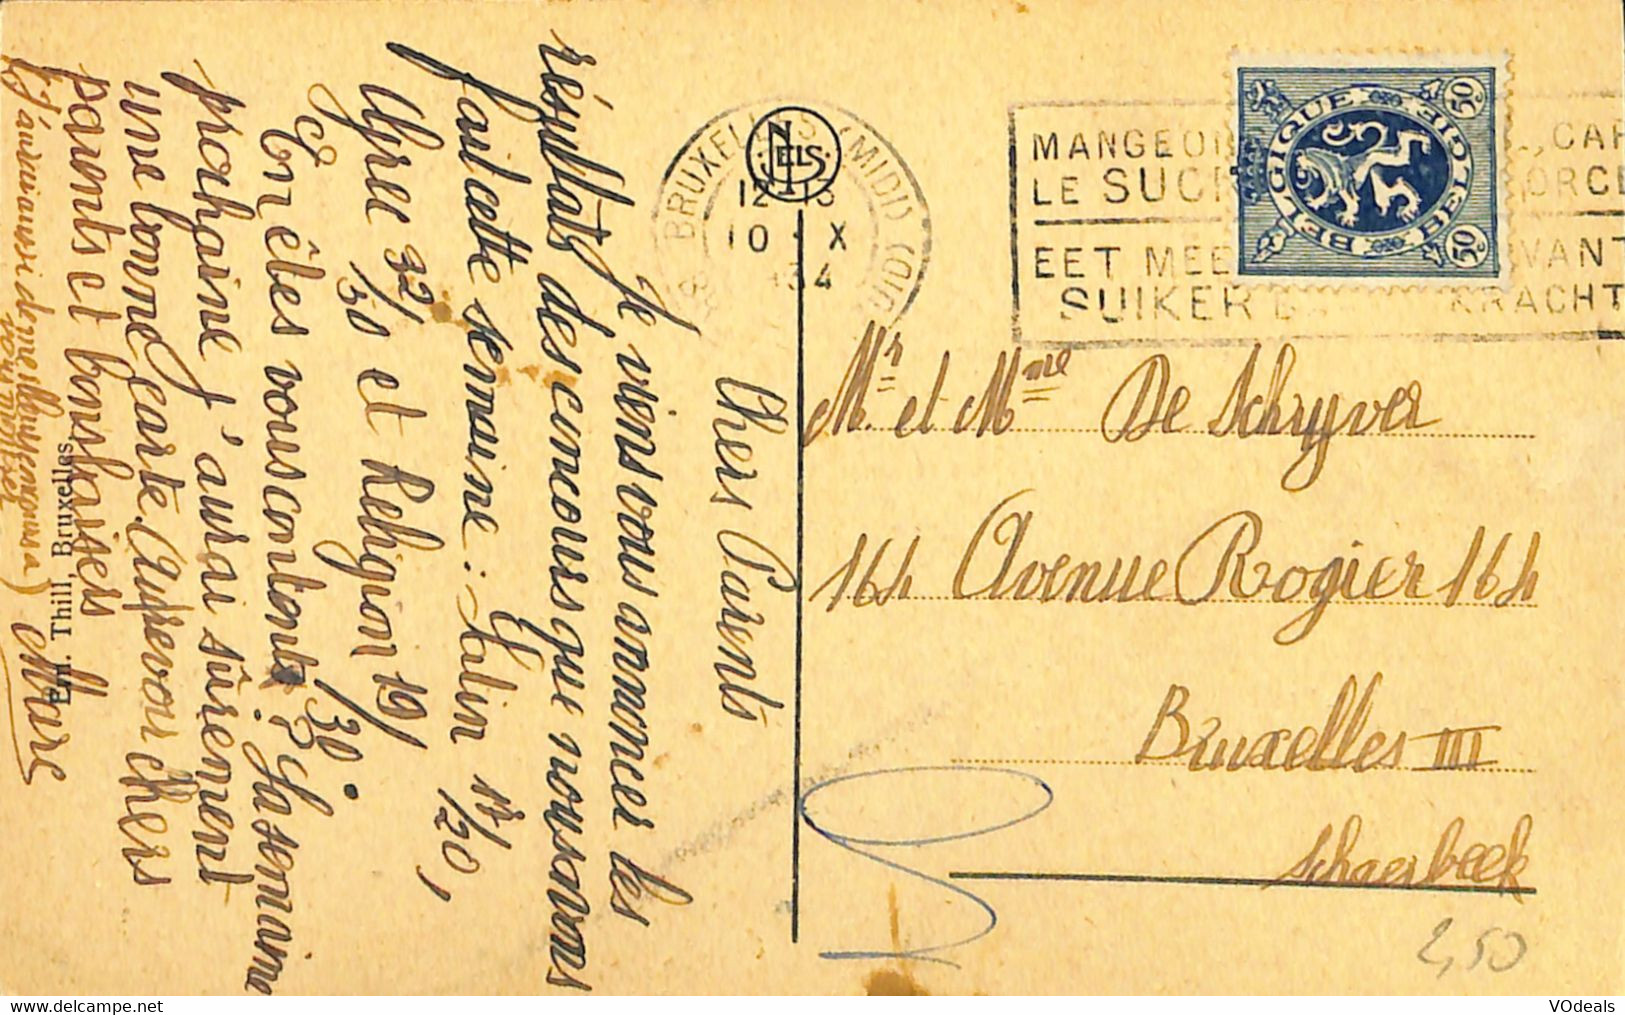 Chers Parents
Je viens vous annoncer les
résultats des concours que nous avons
fait cette semaine : Latin 17/20,
Grec 32/50 et Religion 19/30.
En êtes vous contents? La semaine
prochaine j'aurai sûrement
une bonne carte. Au revoir chers
parents et bons baisers
Marc
Em. Thill, Bruxelles
NELS
BRUXELLES (MIDI)
12-13
10 X
1934
MANGEON CAR
LE SUCR FORCE
EET MEE WANT
SUIKER KRACHT
BELGIQUE BELGIE
50c
50c
Mr. et Mme De Schryver
164 Avenue Rogier 164
Bruxelles III
Schaerbeek
2,50
www.delcampe.net
VOdeals